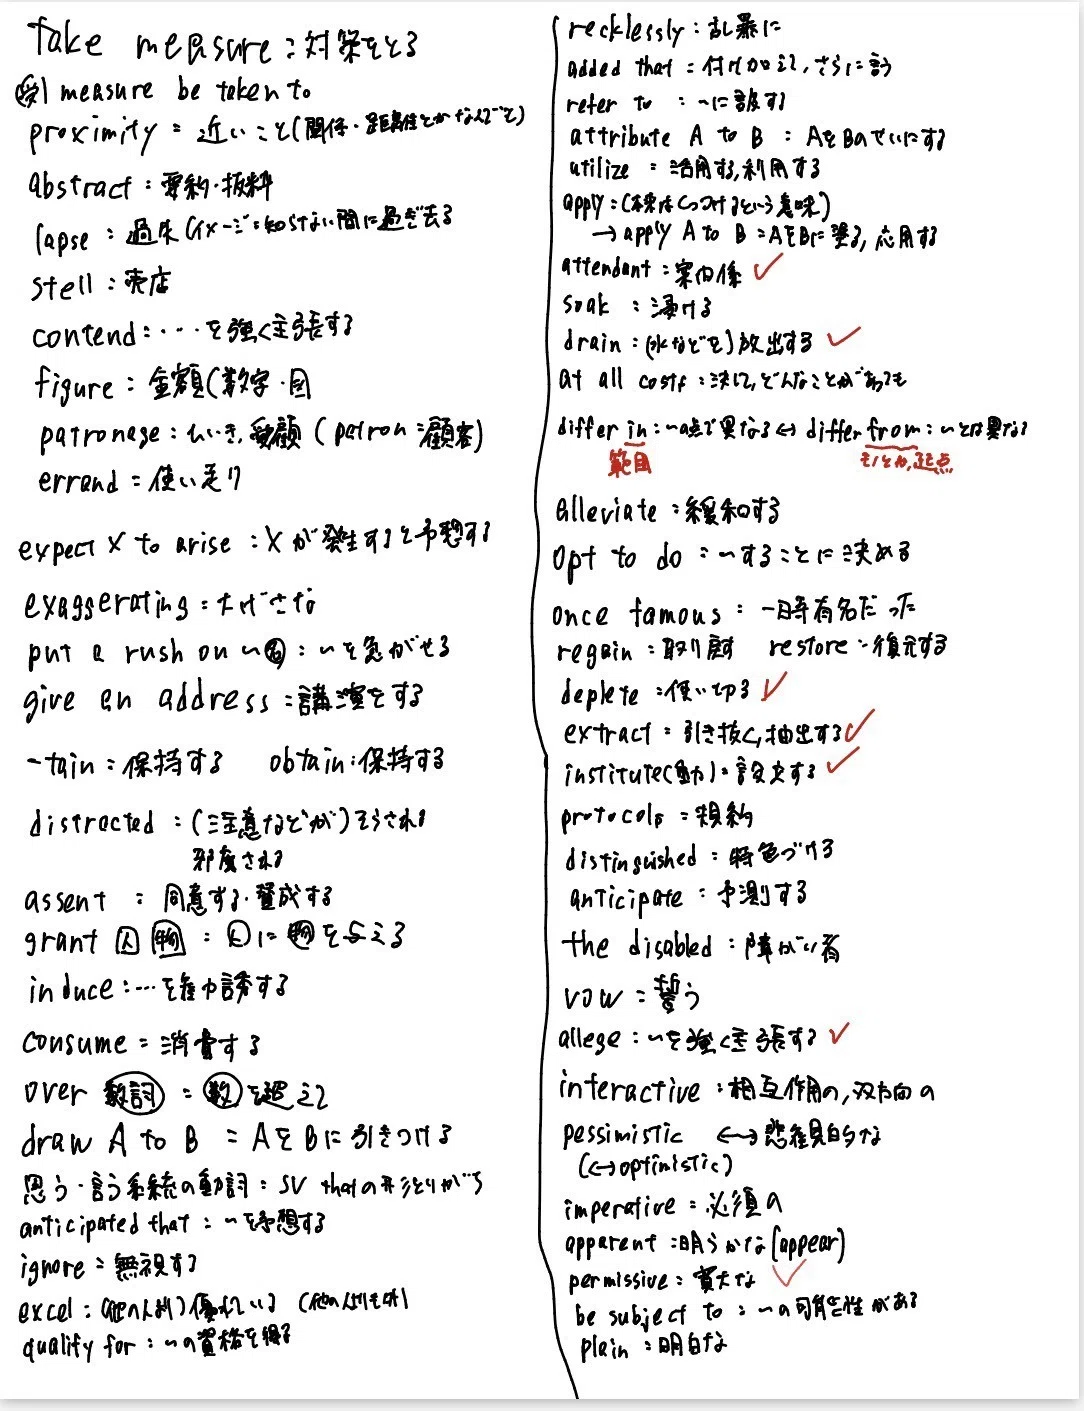 take measure : 対策をとる
(受) measure be taken to
proximity : 近いこと(関係・距離性とかなんでも)
abstract : 要約・抜粋
lapse : 過失(イメージ:知らない間に過ぎ去る
stell : 売店
contend : …を強く主張する
figure : 金額(数字・図
patronage : ひいき, 愛顧 (patron : 顧客)
errand : 使い走り
expect X to arise : Xが発生すると予想する
exaggerating : 大げさな
put a rush on 〜名 : 〜を急がせる
give an address : 講演をする
-tain : 保持する obtain : 保持する
distracted : (注意などが)そらされる
邪魔される
assent : 同意する・賛成する
grant 人 物 : 人に物を与える
induce : …を誘する
consume : 消費する
over 数詞 : 数を超えて
draw A to B : AをBに引きつける
思う・言う系統の動詞 : SV thatの形とりがち
anticipated that : 〜を予想する
ignore : 無視する
excel : (他の人より)優れている
qualify for : 〜の資格を得る
recklessly : 乱暴に
added that : 付け加えて, さらに言う
refer to : 〜に言及する
attribute A to B : AをBのせいにする
utilize : 活用する, 利用する
apply : (本来はくっつけるという意味)
→ apply A to B : AをBに塗る, 応用する
attendant : 案内係 ✓
soak : 漬ける
drain : (水などを)放出する ✓
at all costs : 決して, どんなことがあっても
differ in : 〜の点で異なる ↔ differ from : 〜とは異なる
範囲 もとから, 起点
alleviate : 緩和する
opt to do : 〜することに決める
once famous : 一時有名だった
regain : 取り戻す restore : 復元する
deplete : 使い切る ✓
extract : 引き抜く, 抽出する ✓
institute(動) : 設定する ✓
protocols : 規約
distinguished : 特色づける
anticipate : 予測する
the disabled : 障がい者
vow : 誓う
allege : 〜を強く主張する ✓
interactive : 相互作用の, 双方向の
pessimistic ↔ 悲観的な
(↔optimistic)
imperative : 必須の
apparent : 明らかな (appear)
permissive : 寛大な ✓
be subject to : 〜の可能性がある
plain : 明白な